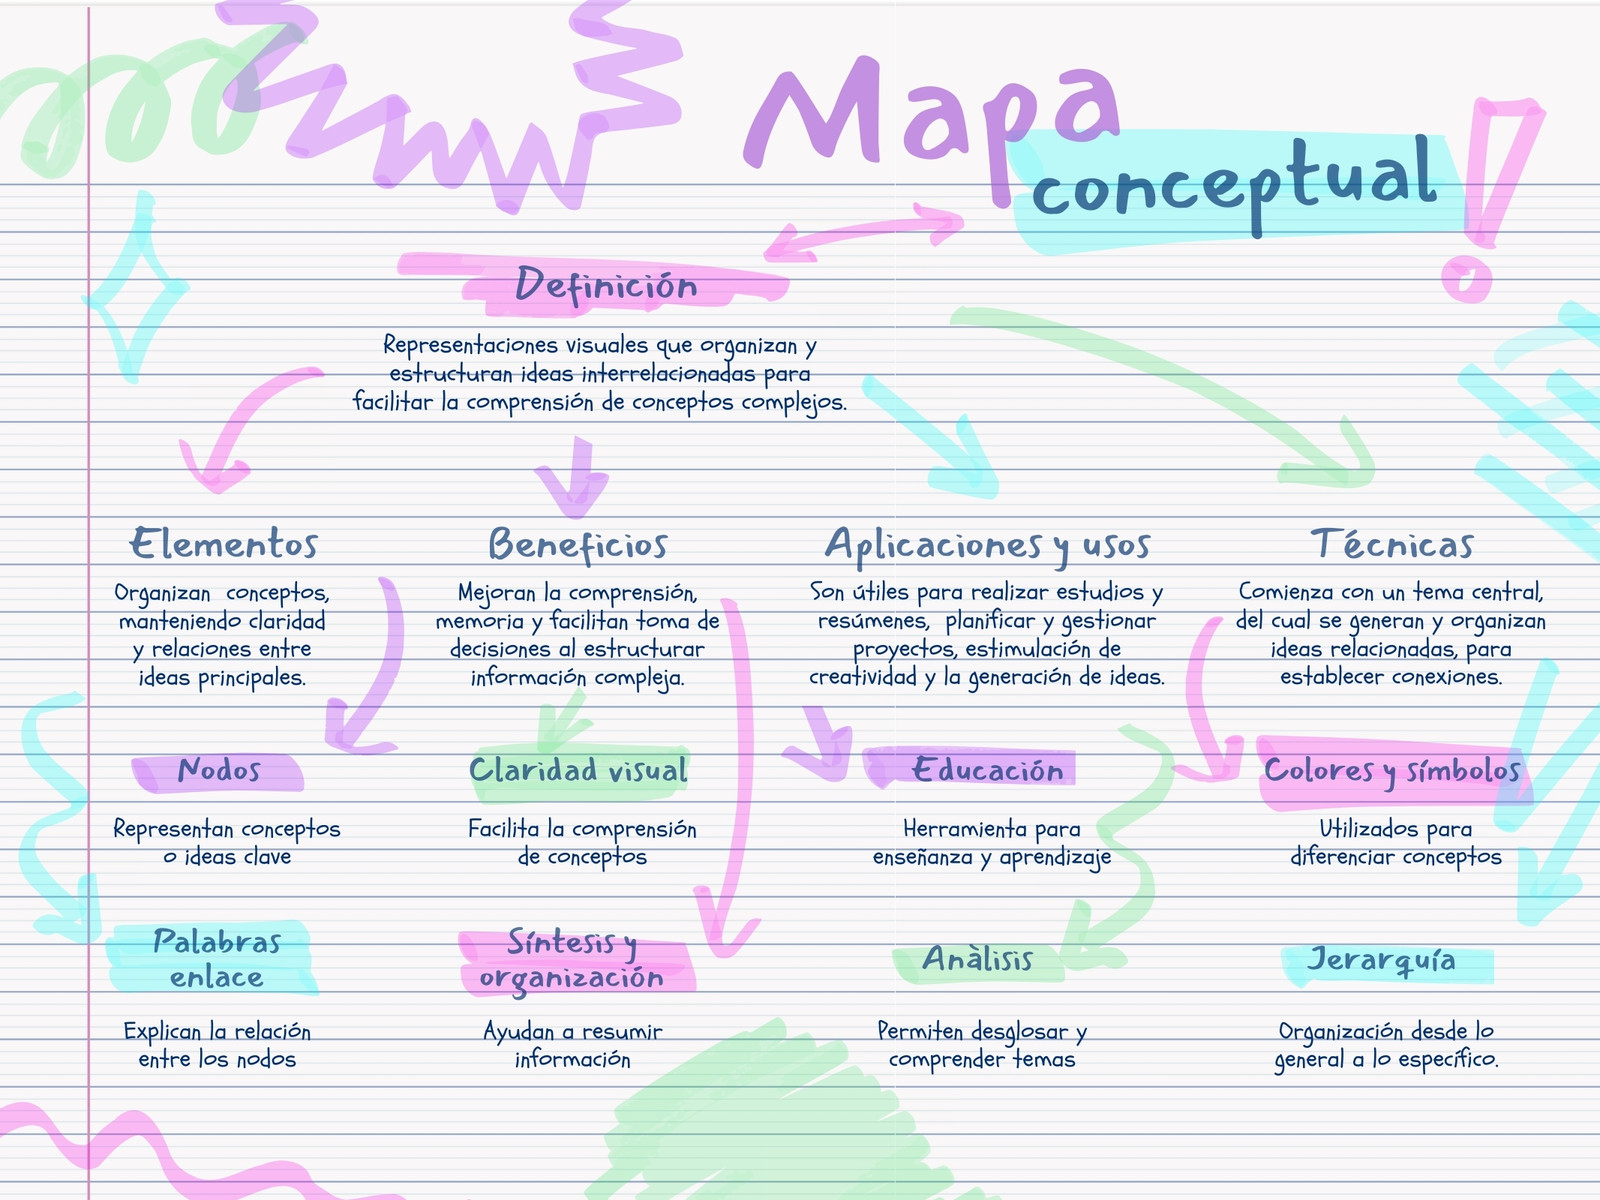 Mapa
conceptual
Definición
Representaciones visuales que organizan y
estructuran ideas interrelacionadas para
facilitar la comprensión de conceptos complejos.
Elementos
Organizan conceptos,
manteniendo claridad
y relaciones entre
ideas principales.
Nodos
Representan conceptos
o ideas clave
Palabras
enlace
Explican la relación
entre los nodos
Beneficios
Mejoran la comprensión,
memoria y facilitan toma de
decisiones al estructurar
información compleja.
Claridad visual
Facilita la comprensión
de conceptos
Síntesis y
organización
Ayudan a resumir
información
Aplicaciones y usos
Son útiles para realizar estudios y
resúmenes, planificar y gestionar
proyectos, estimulación de
creatividad y la generación de ideas.
Educación
Herramienta para
enseñanza y aprendizaje
Anàlisis
Permiten desglosar y
comprender temas
Técnicas
Comienza con un tema central,
del cual se generan y organizan
ideas relacionadas, para
establecer conexiones.
Colores y símbolos
Utilizados para
diferenciar conceptos
Jerarquía
Organización desde lo
general a lo específico.